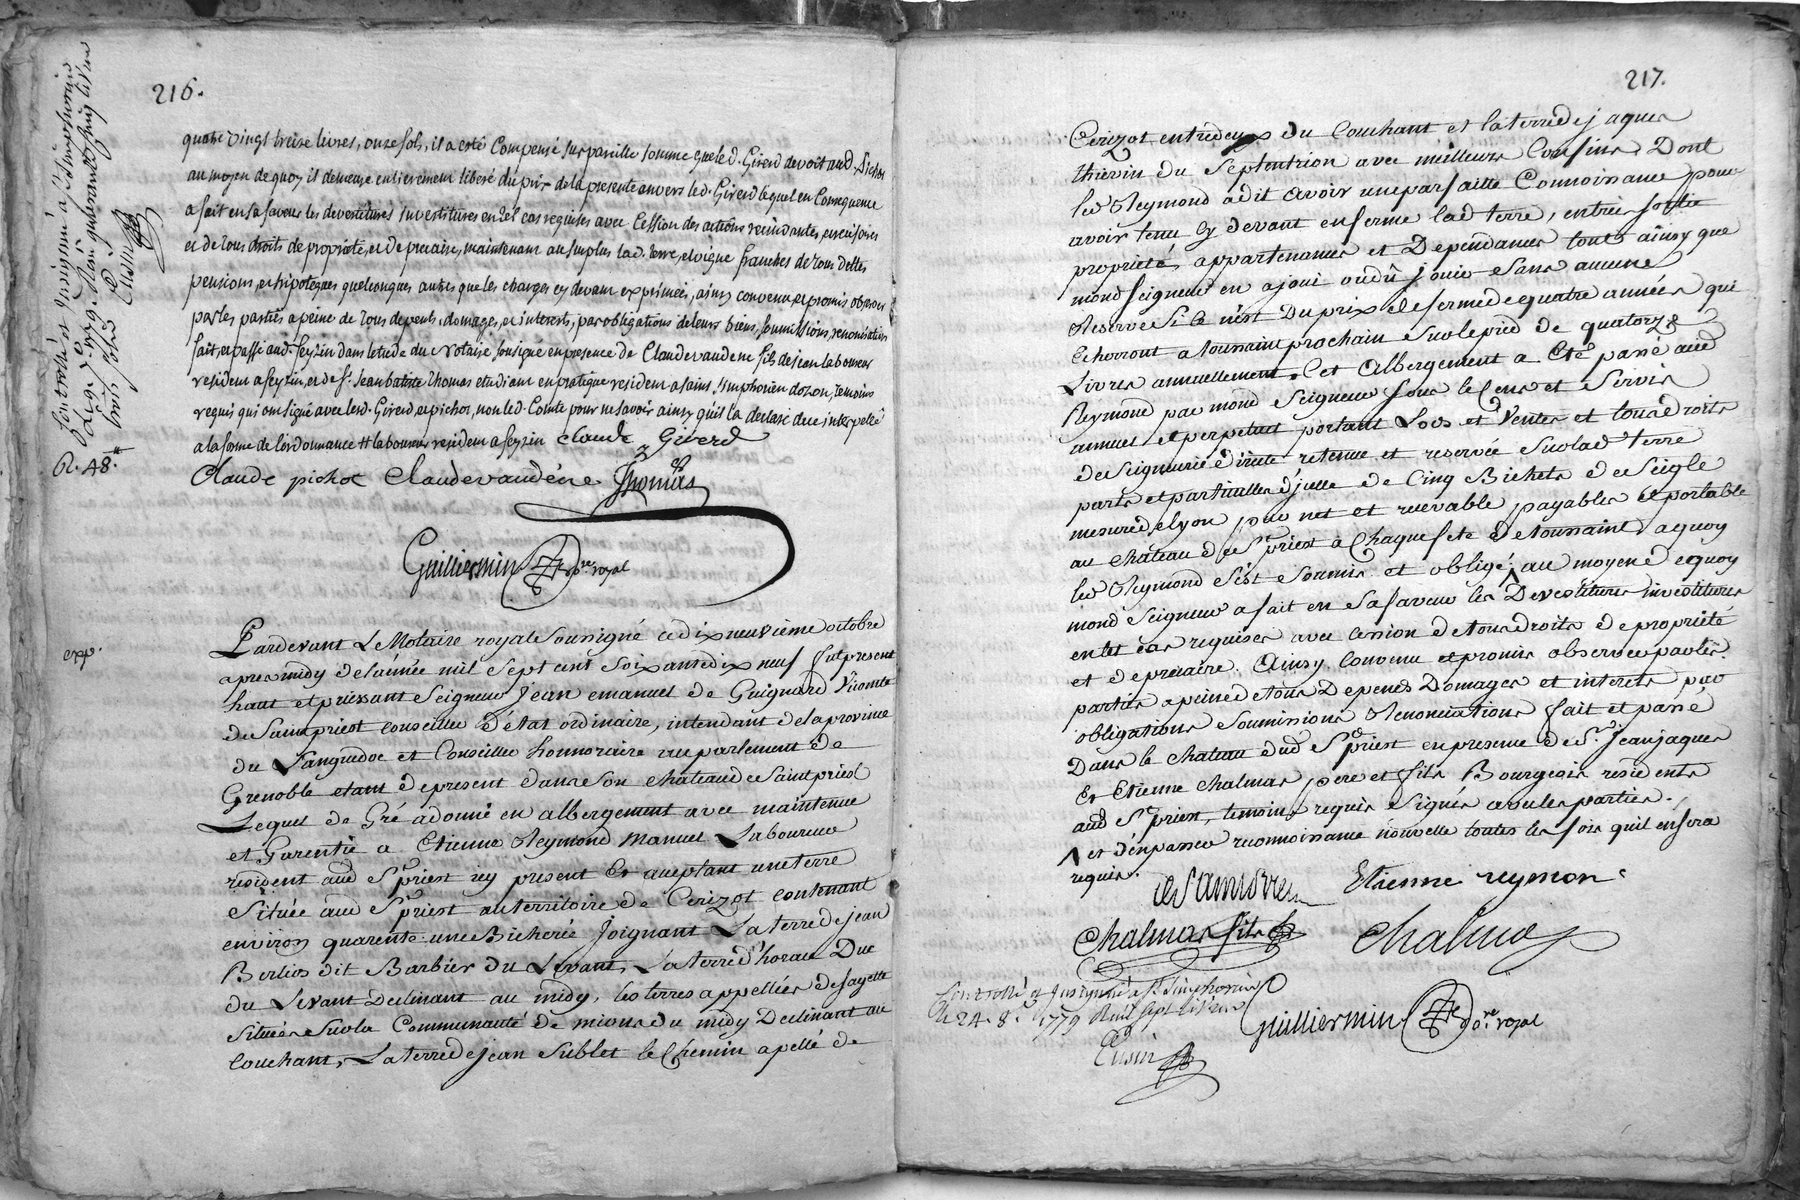 216.
quatre vingt treize livres, onze sols, il a esté compensé sur pareille somme que led. Girerd devoit aud. pichot
au moyen de quoy il demeure entierement liberé du prix de la presente envers led. Girerd lequel en Consequence
a fait en sa faveur les devestitures investitures en tel cas requises avec Cession des actions rescindantes, rescisoires
et de tous droits de propriété, et de precaire, maintenant au surplus lad. terre, et vigne franches de tous dettes
pensions, et hipoteques quelconques autres que les charges cy devant exprimées, ainsy convenu et promis observer
par les parties a peine de tous depents, domages, et interests, par obligations de leurs biens, soumissions, renonciations
fait, et passé aud. feyzin dans letude du Notaire soussigné en presence de Claude vaudene fils de jean laboureur
resident a feyzin, et de sr. Jean batiste Thomas etudiant en pratique resident a saint simphorien dozon, temoins
requis qui ont signé avec lesd. Girerd, et pichot, non led. Comte pour ne savoir ainsy qu'il la declaré duement interpellé
a la forme de l'ordonnance # laboureur resident a feyzin claude Girerd
Claude pichot Claude vaudéne Thomas
Guilliermin nore. royal
Controllé et Insinué a St. simphorien
le 9. 8bre 1779. Reçu quarante cinq livres
trois sols
Cusin
R. 48.#
exp.
Pardevant Le Notaire royal Soussigné ce dix neuvieme octobre
apres midy de l'année mil sept cent soixante dix neuf fut present
haut et puissant Seigneur Jean emanuel de Guignard Vicomte
de Saint priest conseiller d'état ordinaire, intendant de la province
du Languedoc et Conseiller honnoraire au parlement de
Grenoble etant de present dans son chateau de Saint priest
Lequel de Gré a donné en albergement avec maintenue
et Garentie a Etienne Reymond Manuel Laboureur
resident aud St. priest icy present Et acceptant une terre
située aud St. priest au territoire de Cerizot contenant
environ quarente une Bicherée Joignant La terre de jean
Berlios dit Barbier du Levant, La terre d'horace Duc
du Levant Declinant au midy, les terres appellées de fayette
Situées Sur la Communauté de mions du midy Declinant au
Couchant, La terre de jean Sublet le Chemin apellé de
217.
Cerizot entredeux du Couchant et la terre de jaques
thievin du Septentrion avec meilleurs Confins, Dont
led Reymond a dit avoir une parfaite Connoissance pour
avoir tenu cy devant en ferme lad terre, entrée sortie
propriétés, appartenances et Dependances tout ainsy que
mond Seigneur en a joui ou dû jouir sans aucune
Reserve Si ce n'est Du prix de ferme de quatre années qui
Echerront a toussaint prochain Sur le pied de quatorze
Livres annuellement, Cet Albergement a Eté passé aud
Reymond par mond Seigneur sous le Cens et Servis
annuel et perpetuel portant Lods et Ventes et tous droits
de Seigneurie directe retenue et reservée Sur lad terre
parts et particules d'jcelle de Cinq Bichets de Seigle
mesure de lyon pur net et recevable payables et portable
au chateau de St. priest a Chaque fete de toussaint a quoy
led Reymond S'est Soumis et obligé, Λ au moyen de quoy
mond Seigneur a fait en Sa faveur les Devestitures investitures
en tel cas requises avec Cession de tous droits de propriété
et de precaire. Ainsy Convenu et promis observer par les
parties a peine de tous Depends Domages et interets par
obligations Soumissions Renonciations fait et passé
Dans le chateau dud St. priest en presence de Sr. Jean jaques
Et Etienne Chalmas pere et fils Bourgeois residents
aud St. priest, temoins requis Signés avec les parties.
Λ et d'en passer reconnoissance nouvelle toutes les fois quil en sera
requis.
de Saint Priest Etienne reymon
Chalmas fils Chalmas
Controllé et Insinué a St. Simphorien
le 24. 8bre. 1779 Reçu sept livres
Cusin
Guilliermin nore. royal